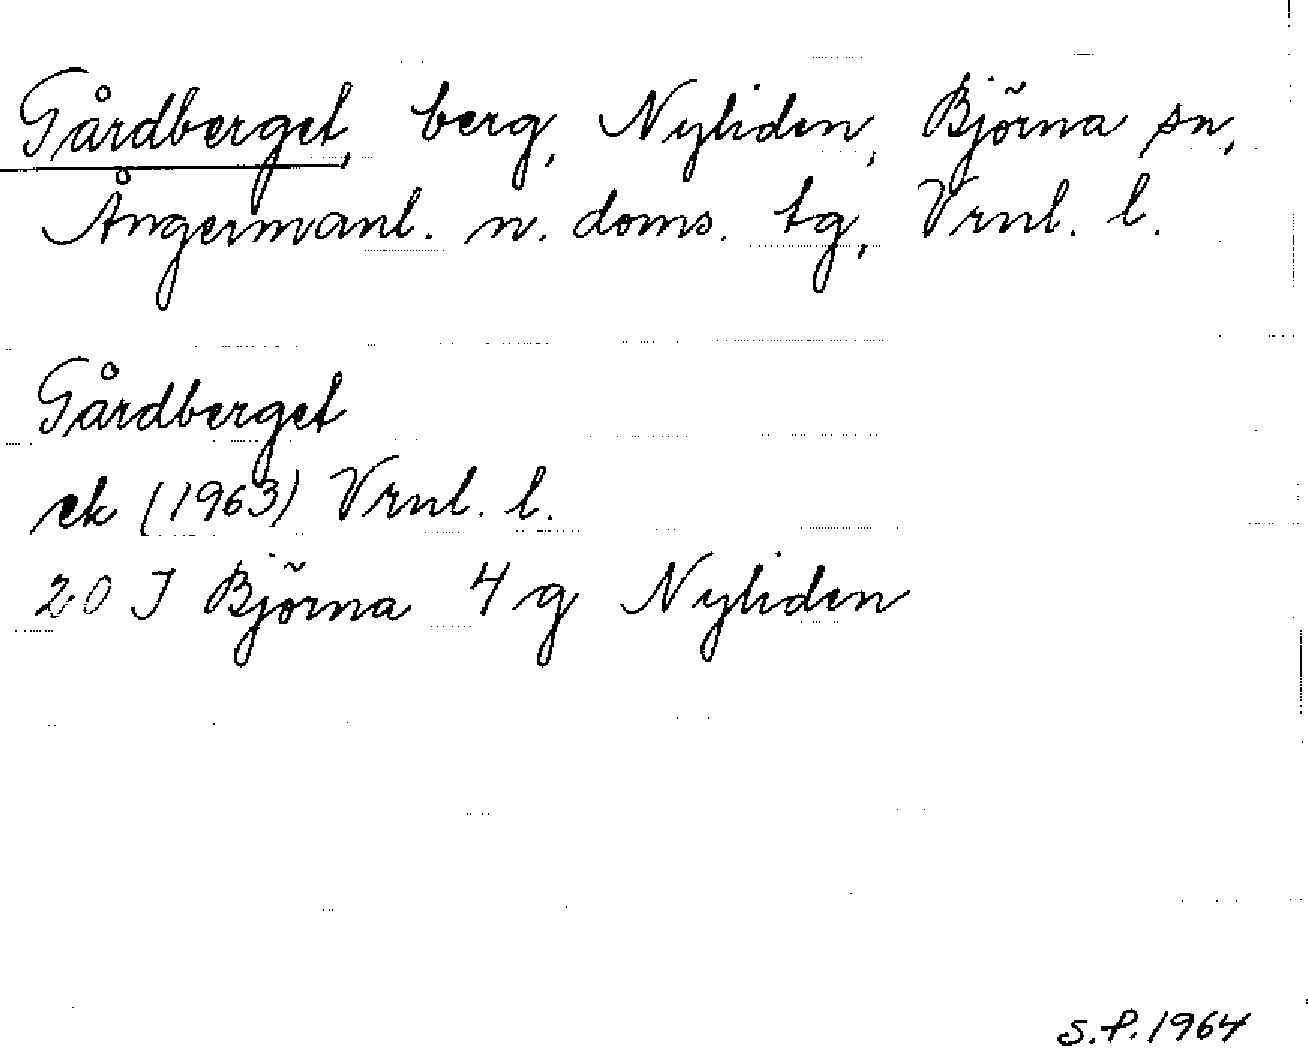 Gårdberget, berg, Nyliden, Björna sn,
Ångermanl. n. doms. tg, Vrnl. l.
Gårdberget
ek (1963) Vrnl. l.
20 J Björna 4 g Nyliden
S.P. 1964